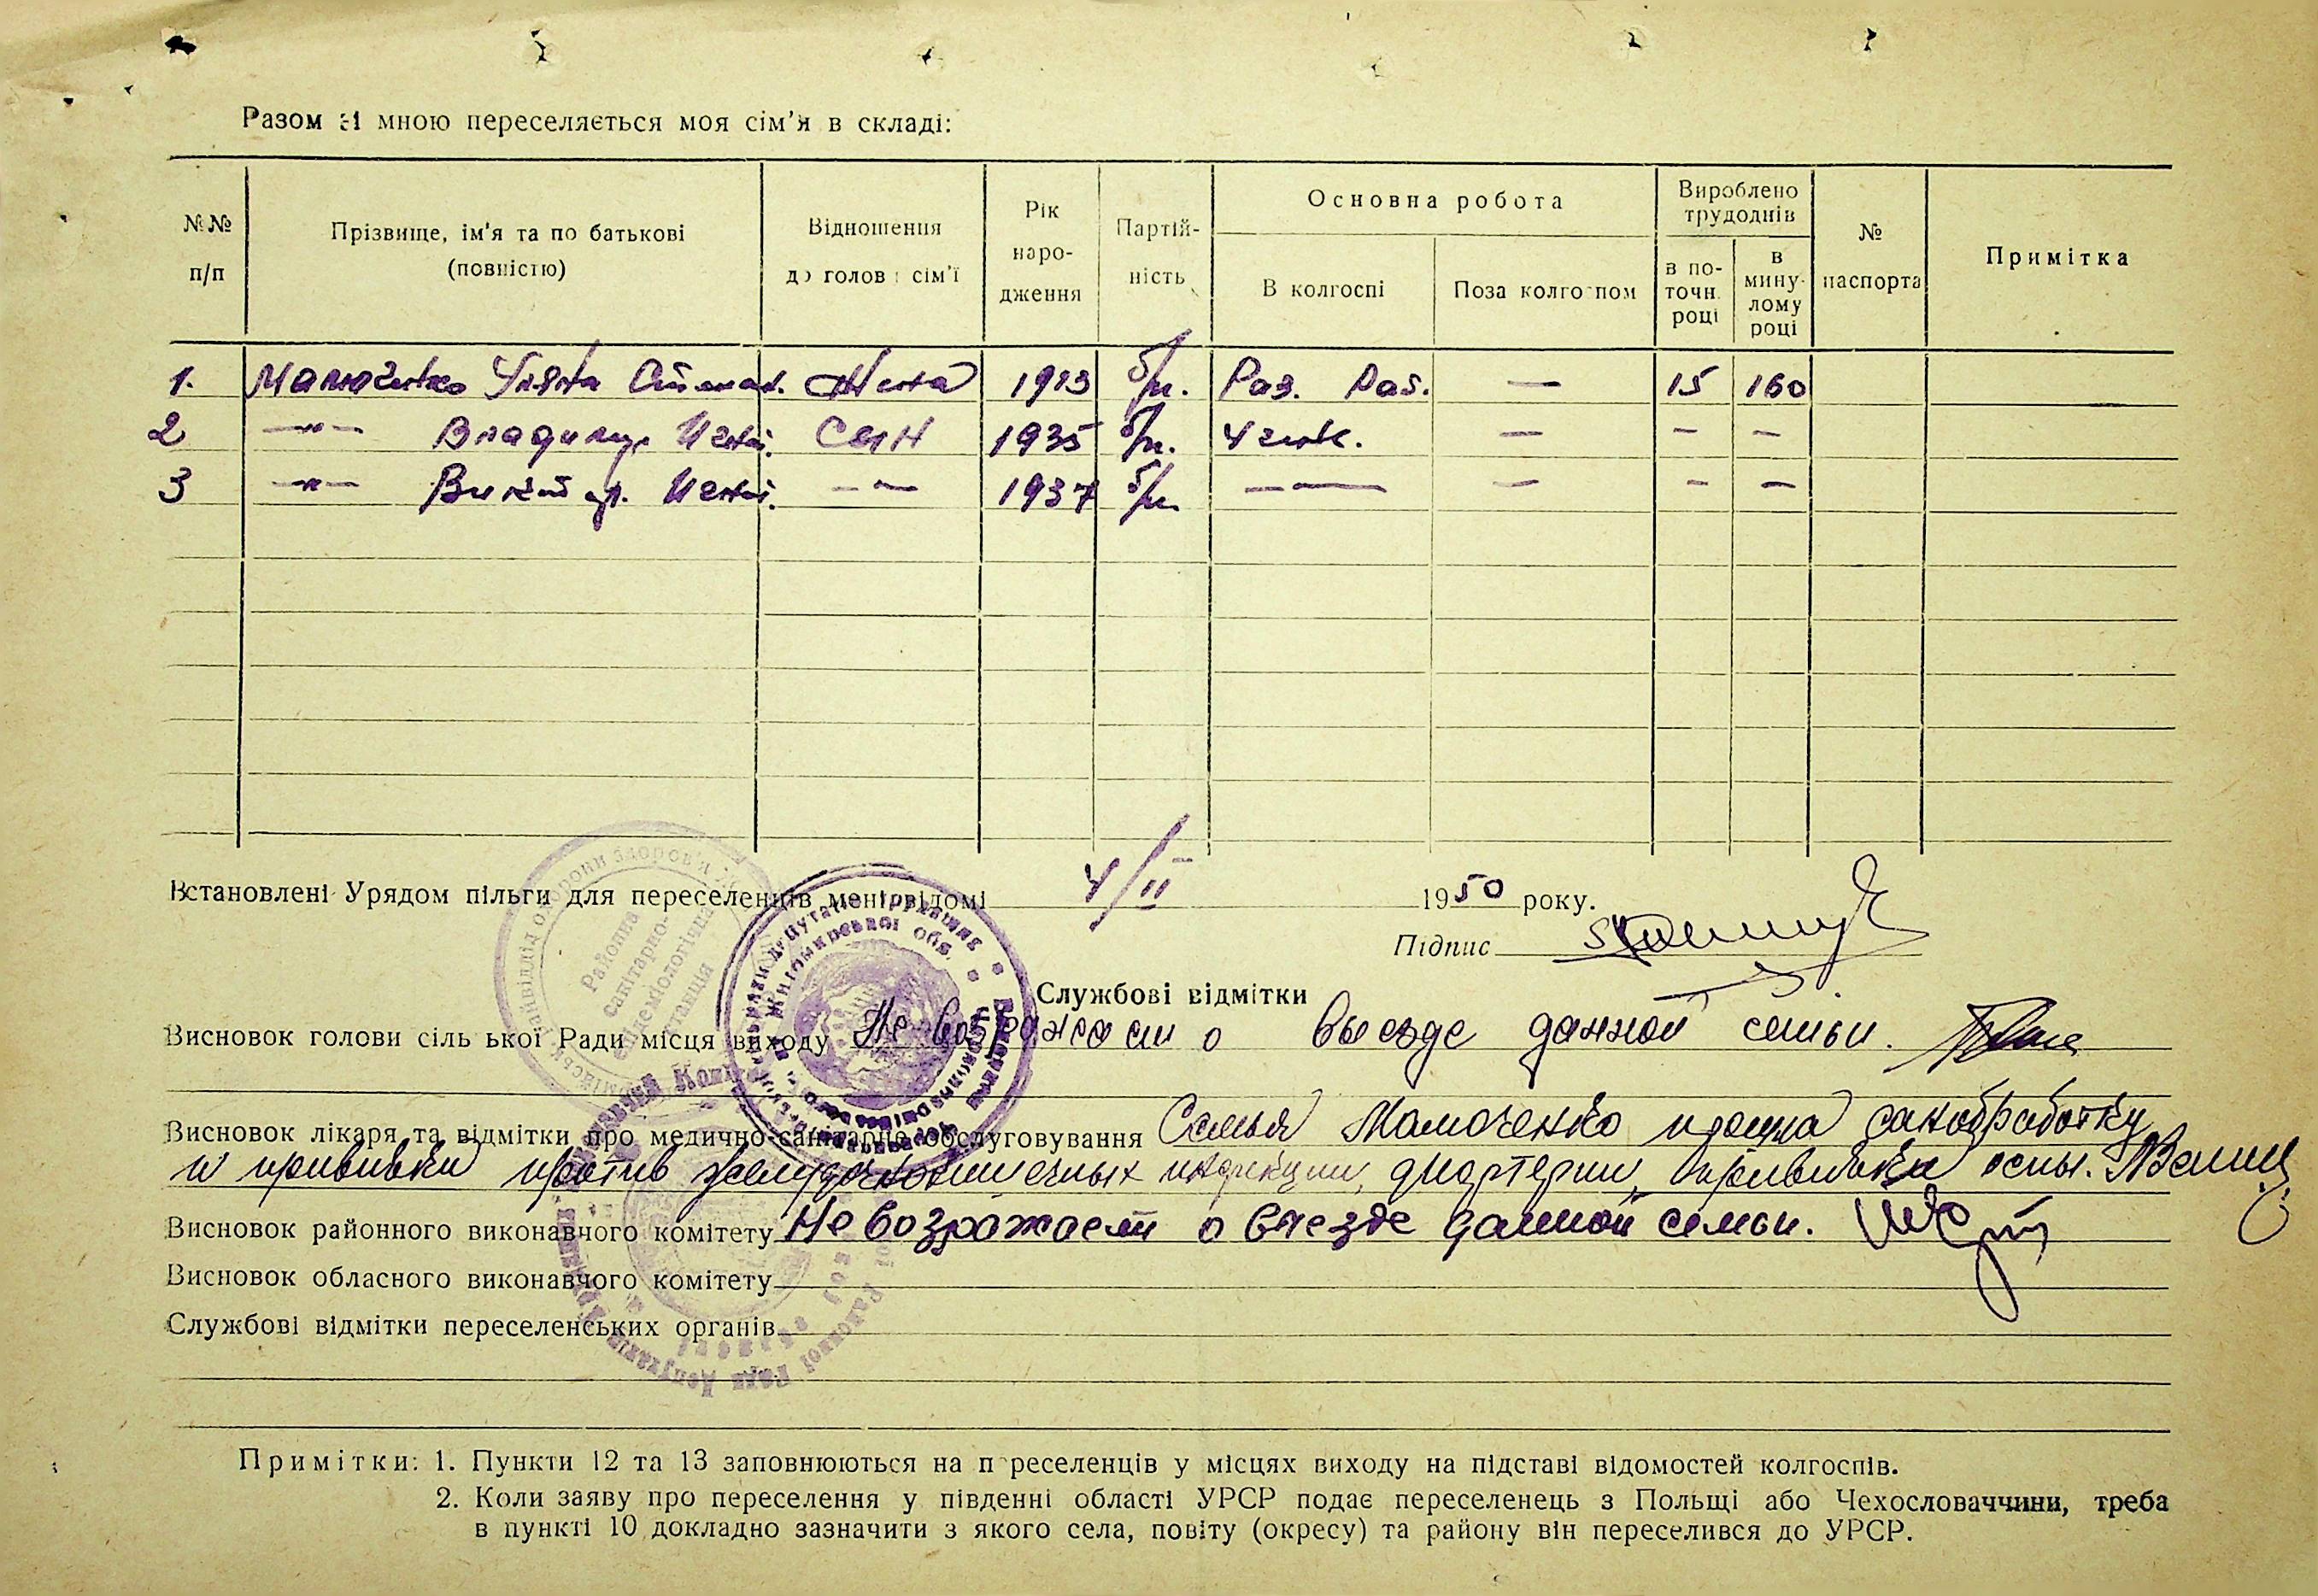 Разом зі мною переселяється моя сім'я в складі:
№№ п/п
Прізвище, ім'я та по батькові (повністю)
Відношення до голови сім'ї
Рік народження
Партійність
Основна робота
В колгоспі
Поза колгоспом
Вироблено трудоднів
в поточн. році
в минулому році
№ паспорта
Примітка
1. Мамоченко Уляна Жена 1913 б/п. Раз. Раб. — 15 160
2 —"— Владимир Игнат. Сын 1935 б/п. Учен. — — —
3 —"— Виктор Игнат. —"— 1937 б/п. —"— — — —
Встановлені Урядом пільги для переселенців мені відомі 4/II 1950 року.
Підпис
Службові відмітки
Висновок голови сільської Ради місця виходу Не возражаем о выезде данной семьи.
Висновок лікаря та відмітки про медично-санітарне обслуговування Семья Мамоченко прошла санобработку
и прививки против желудочнокишечных инфекции, дифтерии, прививки оспы.
Висновок районного виконавчого комітету Не возражаем о выезде данной семьи.
Висновок обласного виконавчого комітету
Службові відмітки переселенських органів
Примітки: 1. Пункти 12 та 13 заповнюються на переселенців у місцях виходу на підставі відомостей колгоспів.
2. Коли заяву про переселення у південні області УРСР подає переселенець з Польщі або Чехословаччини, треба
в пункті 10 докладно зазначити з якого села, повіту (округу) та району він переселився до УРСР.
Районна
санітарно-
епідеміологічна
станція